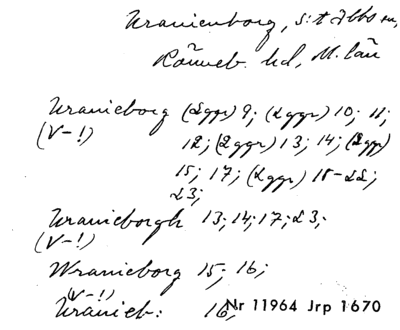 Uranienborg, s:t Ibbs sn,
Rönneb. hd, M. län
Uranieborg (2ggr) 9; (2ggr) 10; 11;
(V-!)
12; (2ggr) 13; 14; (2ggr)
15; 17; (2ggr) 18-22;
23;
Uranieborgh 13; 14; 17; 23;
(V-!)
Wranieborg 15; 16;
(V-!)
Uranieb: 16;
Nr 11964 Jrp 1670